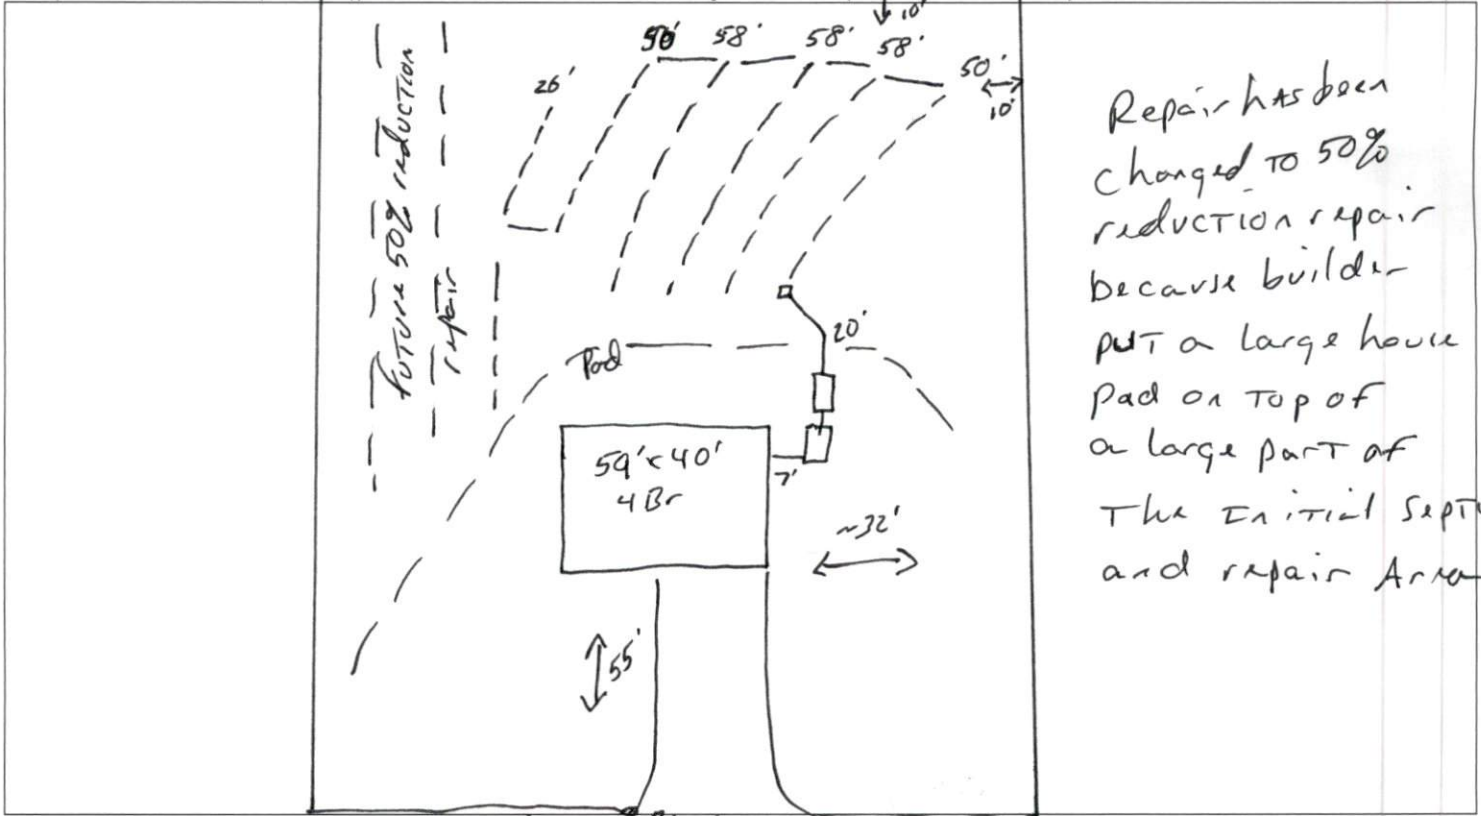 10'
50' 58' 58' 58' 50'
26'
10'
Future 50% reduction
repair
20'
Pad
59' x 40'
4 Br
7'
~32'
55'
Repair has been
changed to 50%
reduction repair
because builder
put a large house
pad on top of
a large part of
The Initial Septi
and repair Area